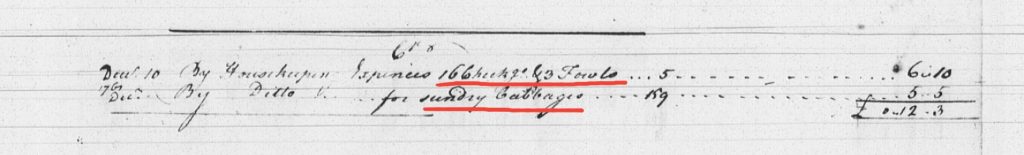 Cr
Decr 10 By Housekeepin Expinces 16 Chickns & 3 Fowls ... 5 ... 6 .. 10
By Ditto ... for sundry Cabbages ... 159 ... 5 .. 5
£ 0 .. 12 .. 3